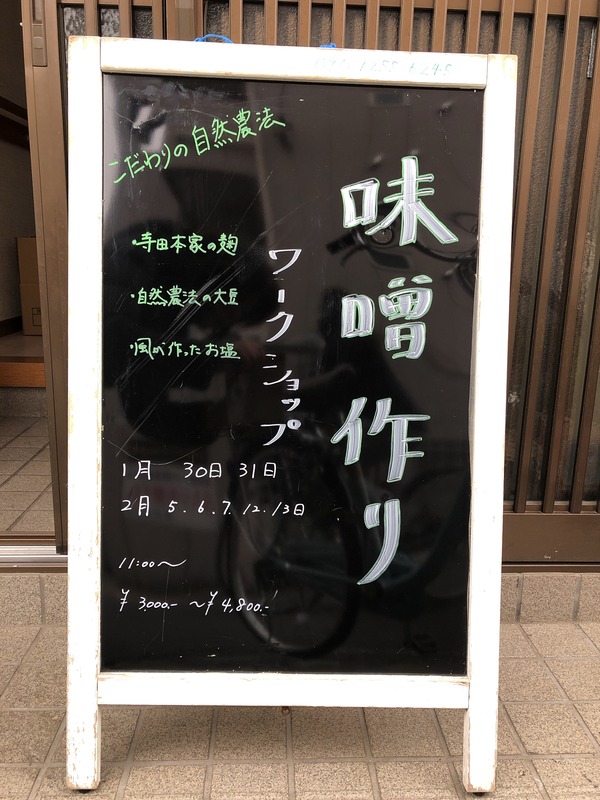 味噌作り
ワークショップ
こだわりの自然農法
・寺田本家の麹
・自然農法の大豆
・風が作ったお塩
1月 30日 31日
2月 5. 6. 7. 12. 13日
11:00〜
¥3,000.- 〜¥4,800.-